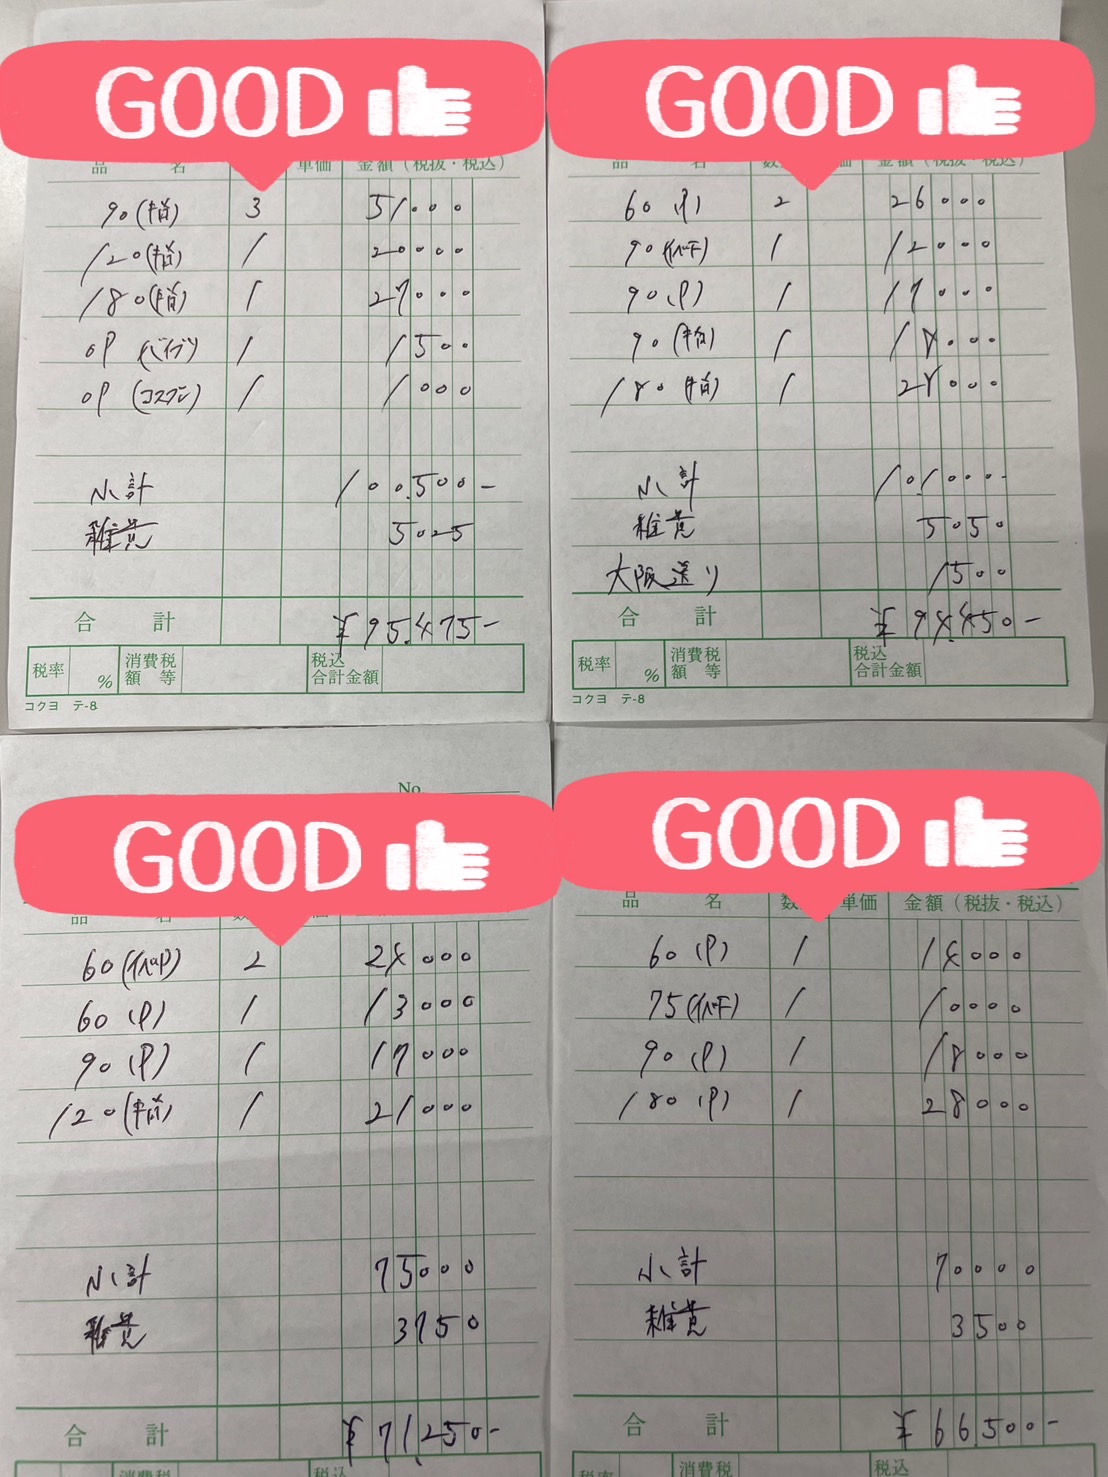 GOOD
品 名 単価 金額（税抜・税込）
90(指) 3 51000
120(指) 1 20000
180(指) 1 27000
OP (バイブ) 1 1500
OP (コスプレ) 1 1000
小計 100,500-
雑費 5025
合計 ¥95,475-
税率 % 消費税額等 税込合計金額
コクヨ テ-8
GOOD
品 名 数 価 金額（税抜・税込）
60(P) 2 26000
90(イベ) 1 12000
90(P) 1 17000
90(指) 1 18000
180(指) 1 28000
小計 101000-
雑費 5050
大阪送り 1500
合計 ¥94,450-
税率 % 消費税額等 税込合計金額
コクヨ テ-8
No
GOOD
品 名 数 価
60(イベP) 2 24000
60(P) 1 13000
90(P) 1 17000
120(指) 1 21000
小計 75000
雑費 3750
合計 ¥71,250-
消費税 税込
GOOD
品 名 数 単価 金額（税抜・税込）
60(P) 1 14000
75(イベ) 1 10000
90(P) 1 18000
180(P) 1 28000
小計 70000
雑費 3500
合計 ¥66,500-
税率 消費税 税込